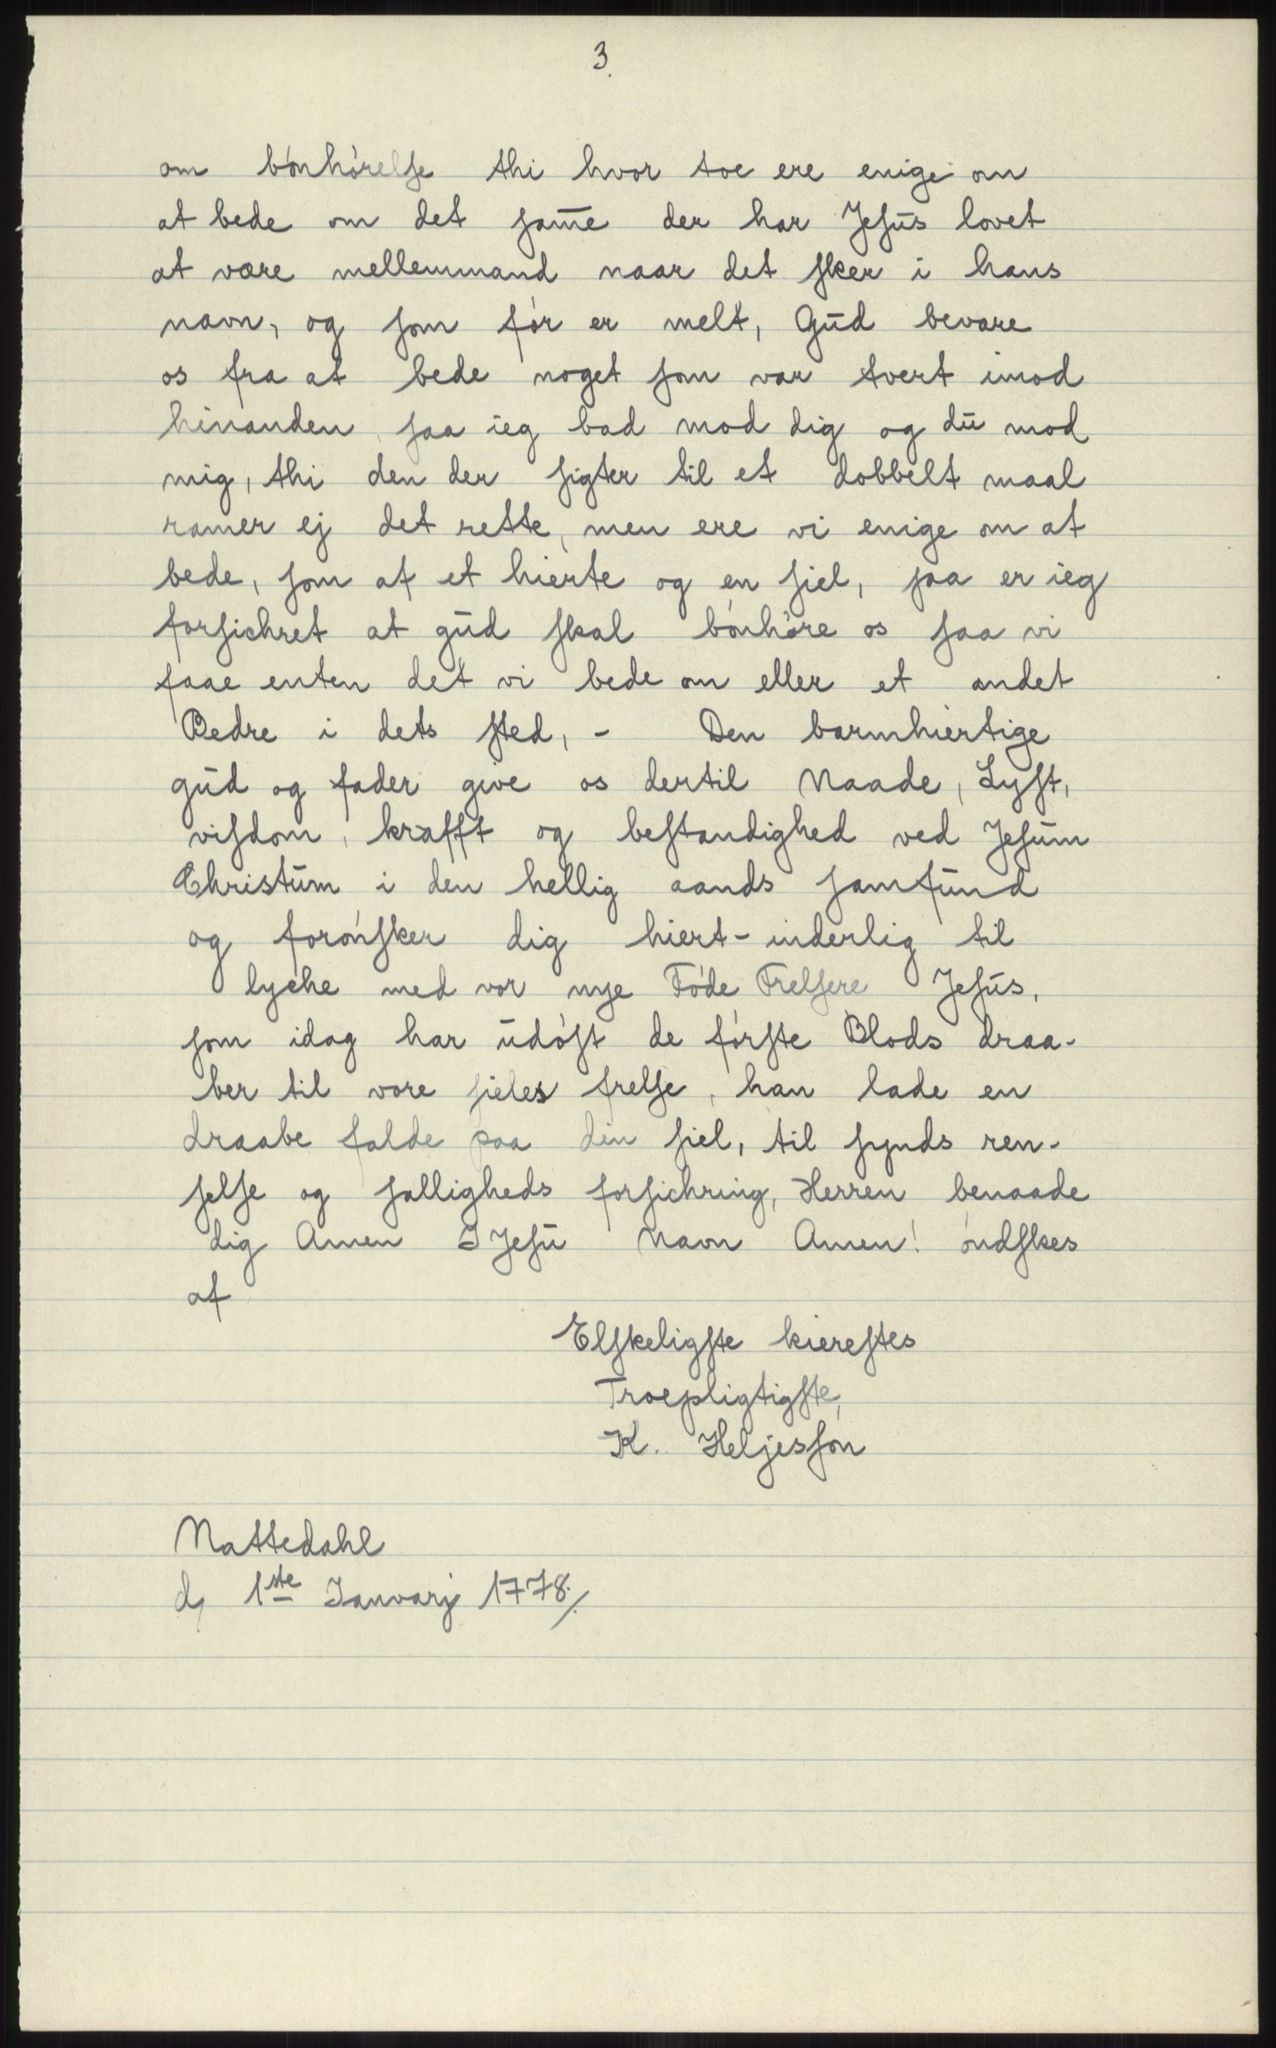 3.
om bónhórelſe thi hvor toe ere enige om
at bede om det ſam̄e der har Jeſūs lovet
at være mellemmand naar det ſker i hans
navn, og ſom fór er melt, Gūd bevare
os fra at bede noget ſom var tvert imod
hinanden, ſaa ieg bad mod dig og dū mod
mig, thi den der ſigter til et dobbelt maal
ramer ej det rette, men ere vi enige om at
bede, ſom af et hierte og en ſiel, ſaa er ieg
forſichret at gūd ſkal bónhóre os ſaa vi
faae enten det vi bede om eller et andet
Bedre i dets ſted, - Den barmhiertige
gūd og fader give os dertil Naade, Lyſt,
viſdom, krafft og beſtandighed ved Jeſūm
Christūm i den hellig aands ſamfūnd
og forónſker dig hiert-inderlig til
lyche med vor nye Fóde Frelſere Jeſūs,
ſom idag har ūdóſt de fórſte Blods draa-
ber til vore ſieles frelſe, han lade en
draabe falde paa din ſiel, til ſynds ren-
ſelſe og ſalligheds forſichring, Herren benaade
dig Amen I Jeſū Navn Amen! óndſkes
af
Elſkeligſte kiereſtes
Troepligtigſte,
K. Heljesſón
Nattedahl
d, 1ste Janvarj 1778./.